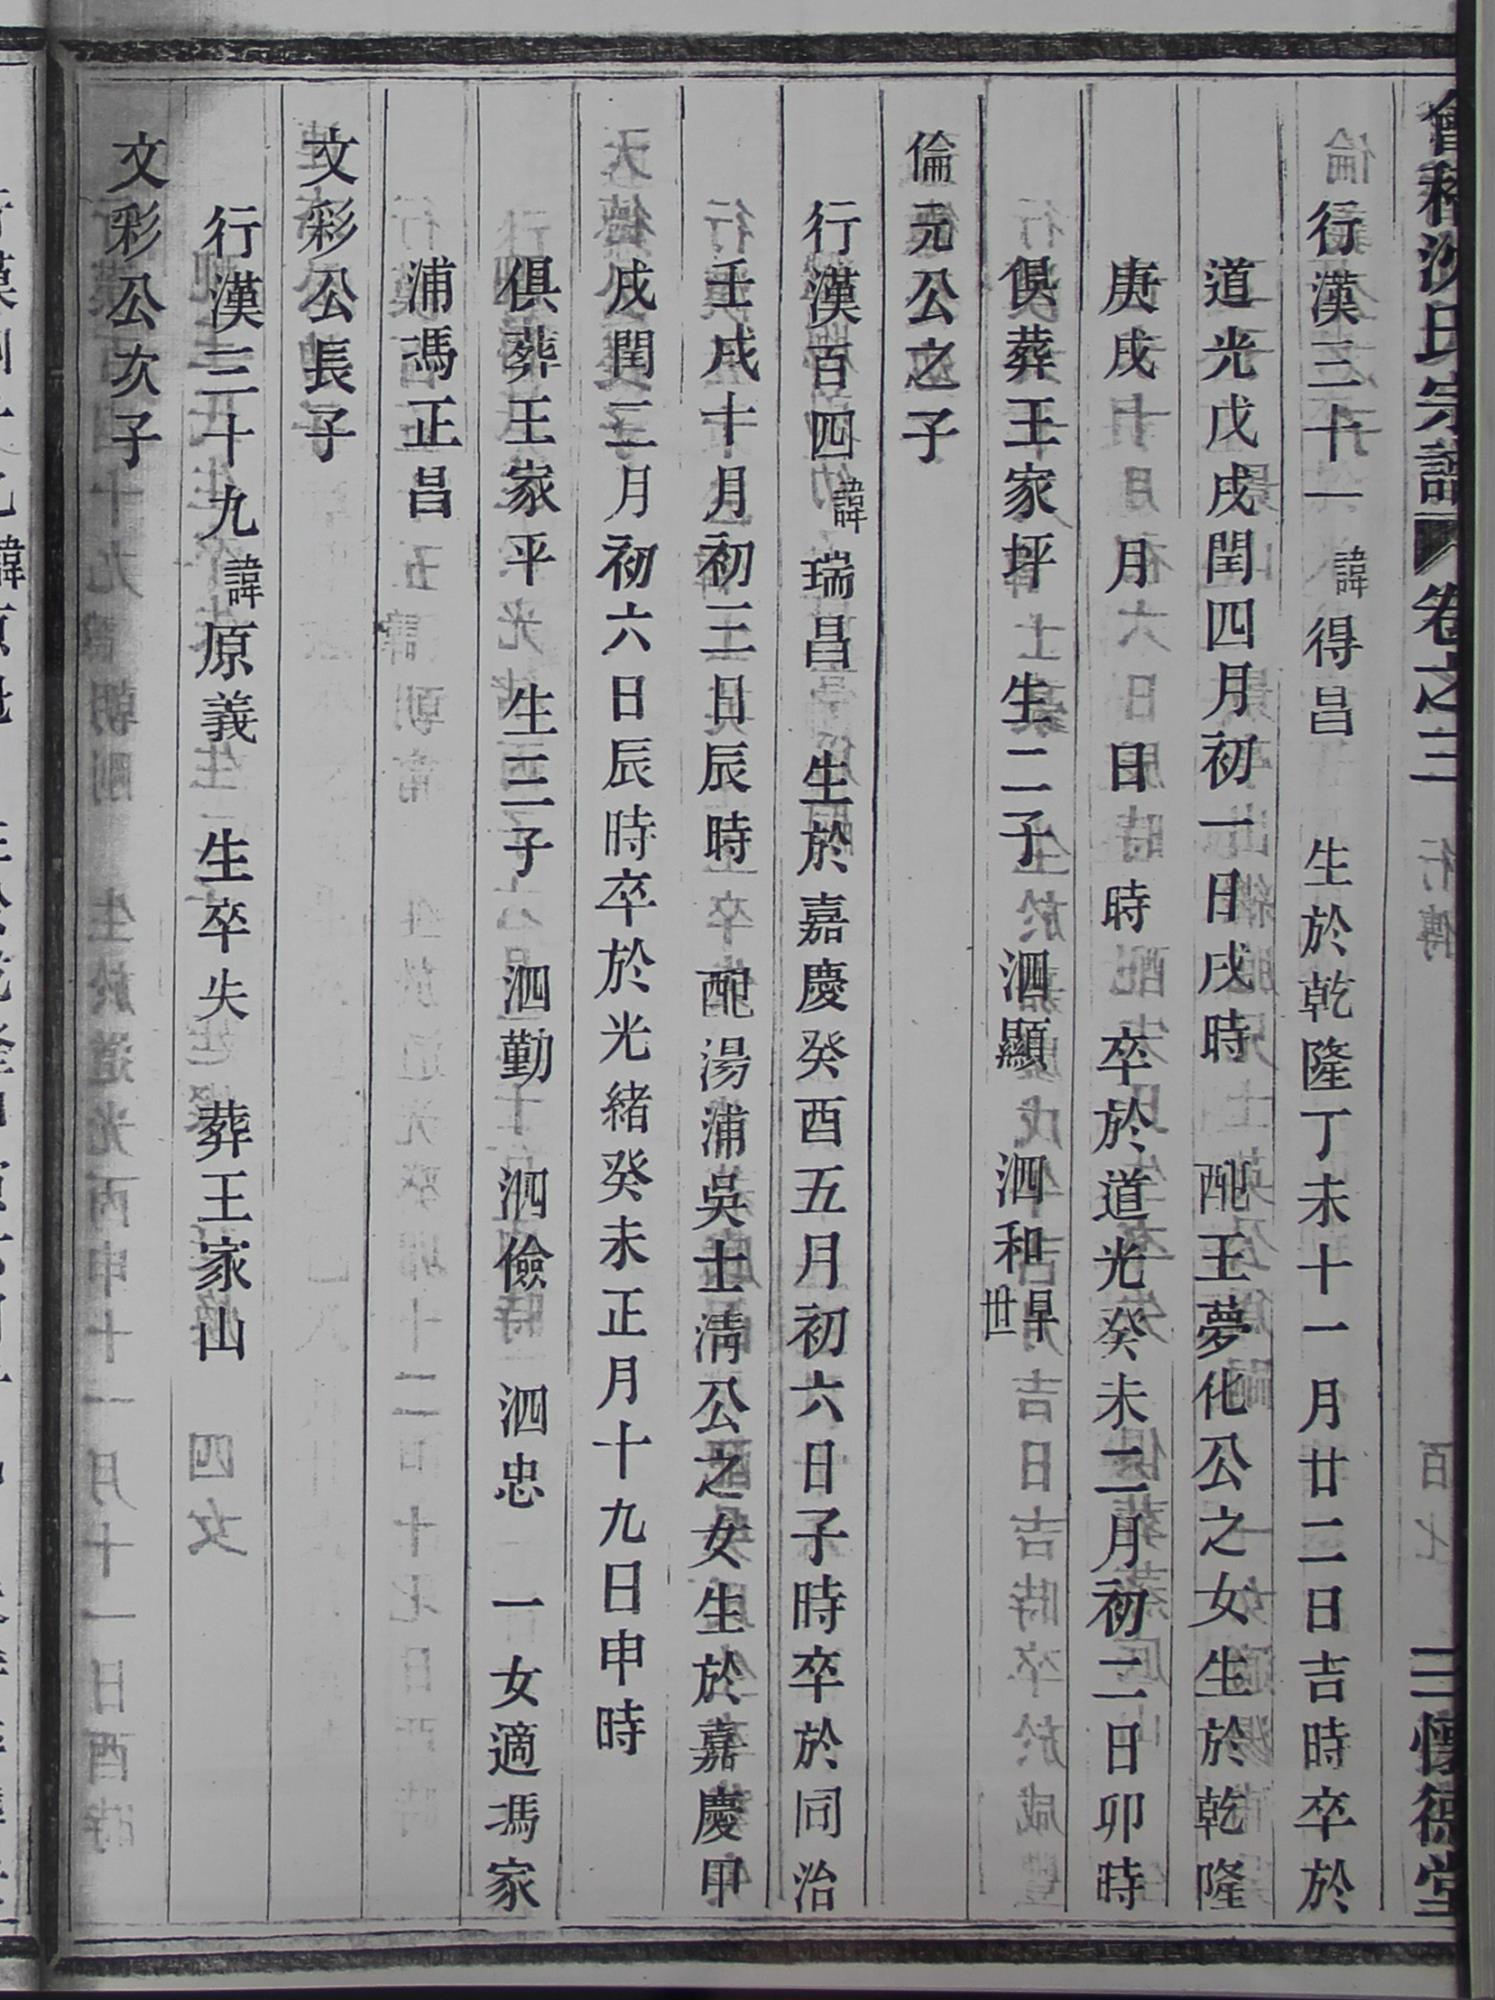 會稽沈氏宗譜 卷之三 行傳 百七 三懷德堂
行漢三十一諱得昌 生於乾隆丁未十一月廿二日吉時卒於
道光戊戌閏四月初一日戌時 配王夢化公之女生於乾隆
庚戌 月 日 時 卒於道光癸未二月初二日卯時
俱葬王家坪 生二子 泗顯 泗和早世
倫元公之子
行漢百四諱瑞昌 生於嘉慶癸酉五月初六日子時卒於同治
壬戌十月初三日辰時 配湯浦吳士淸公之女生於嘉慶甲
戌閏二月初六日辰時卒於光緒癸未正月十九日申時
俱葬王家平 生三子 泗勤 泗儉 泗忠 一女適馮家
浦馮正昌
文彩公長子
行漢三十九諱原義 生卒失 葬王家山
文彩公次子